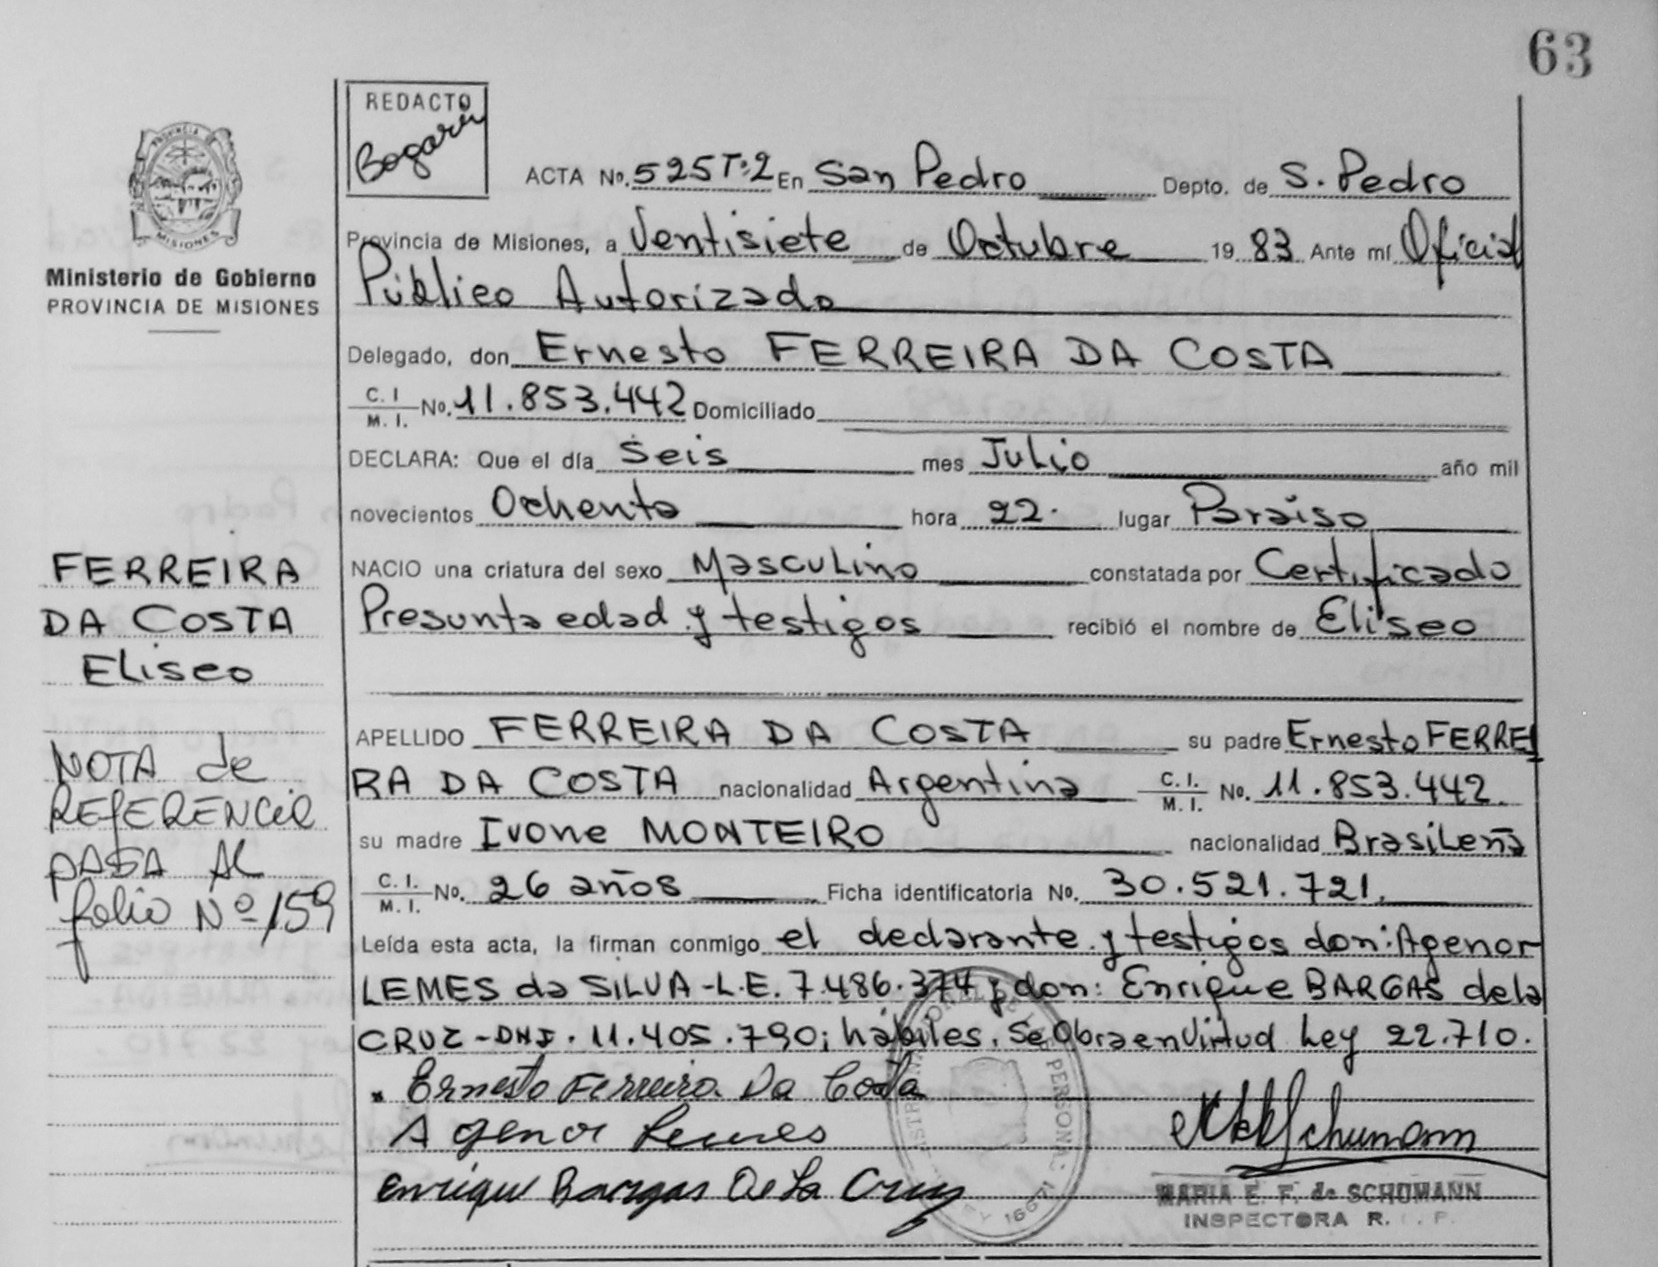 63
REDACTO
Bogarin
PROVINCIA DE
MISIONES
Ministerio de Gobierno
PROVINCIA DE MISIONES
ACTA No. 525 T:2 En San Pedro Depto. de S. Pedro
Provincia de Misiones, a Ventisiete de Octubre 19 83 Ante mí Oficial
Público Autorizado
Delegado, don Ernesto FERREIRA DA COSTA
C. I. M. I. No. 11.853.442 Domiciliado
DECLARA: Que el día Seis mes Julio año mil
novecientos Ochenta hora 22. lugar Paraiso
NACIO una criatura del sexo Masculino constatada por Certificado
Presunta edad y testigos recibió el nombre de Eliseo
FERREIRA
DA COSTA
Eliseo
APELLIDO FERREIRA DA COSTA su padre Ernesto FERREI
RA DA COSTA nacionalidad Argentina C. I. M. I. No. 11.853.442
su madre Ivone MONTEIRO nacionalidad Brasileña
C. I. M. I. No. 26 años Ficha identificatoria No. 30.521.721.
NOTA de
REFERENCIA
PASA AL
folio Nº 159
Leída esta acta, la firman conmigo el declarante y testigos don: Agenor
LEMES da SILVA-L.E. 7.486.374 y don: Enrique BARGAS de la
CRUZ-DNI. 11.405.790; hábiles. Se Obra en Virtud Ley 22.710.
Ernesto Ferreira Da Costa
Agenor Lemes
Enrique Bargas De La Cruz
Schumann
MARIA E. F. de SCHUMANN
INSPECTORA R. P.